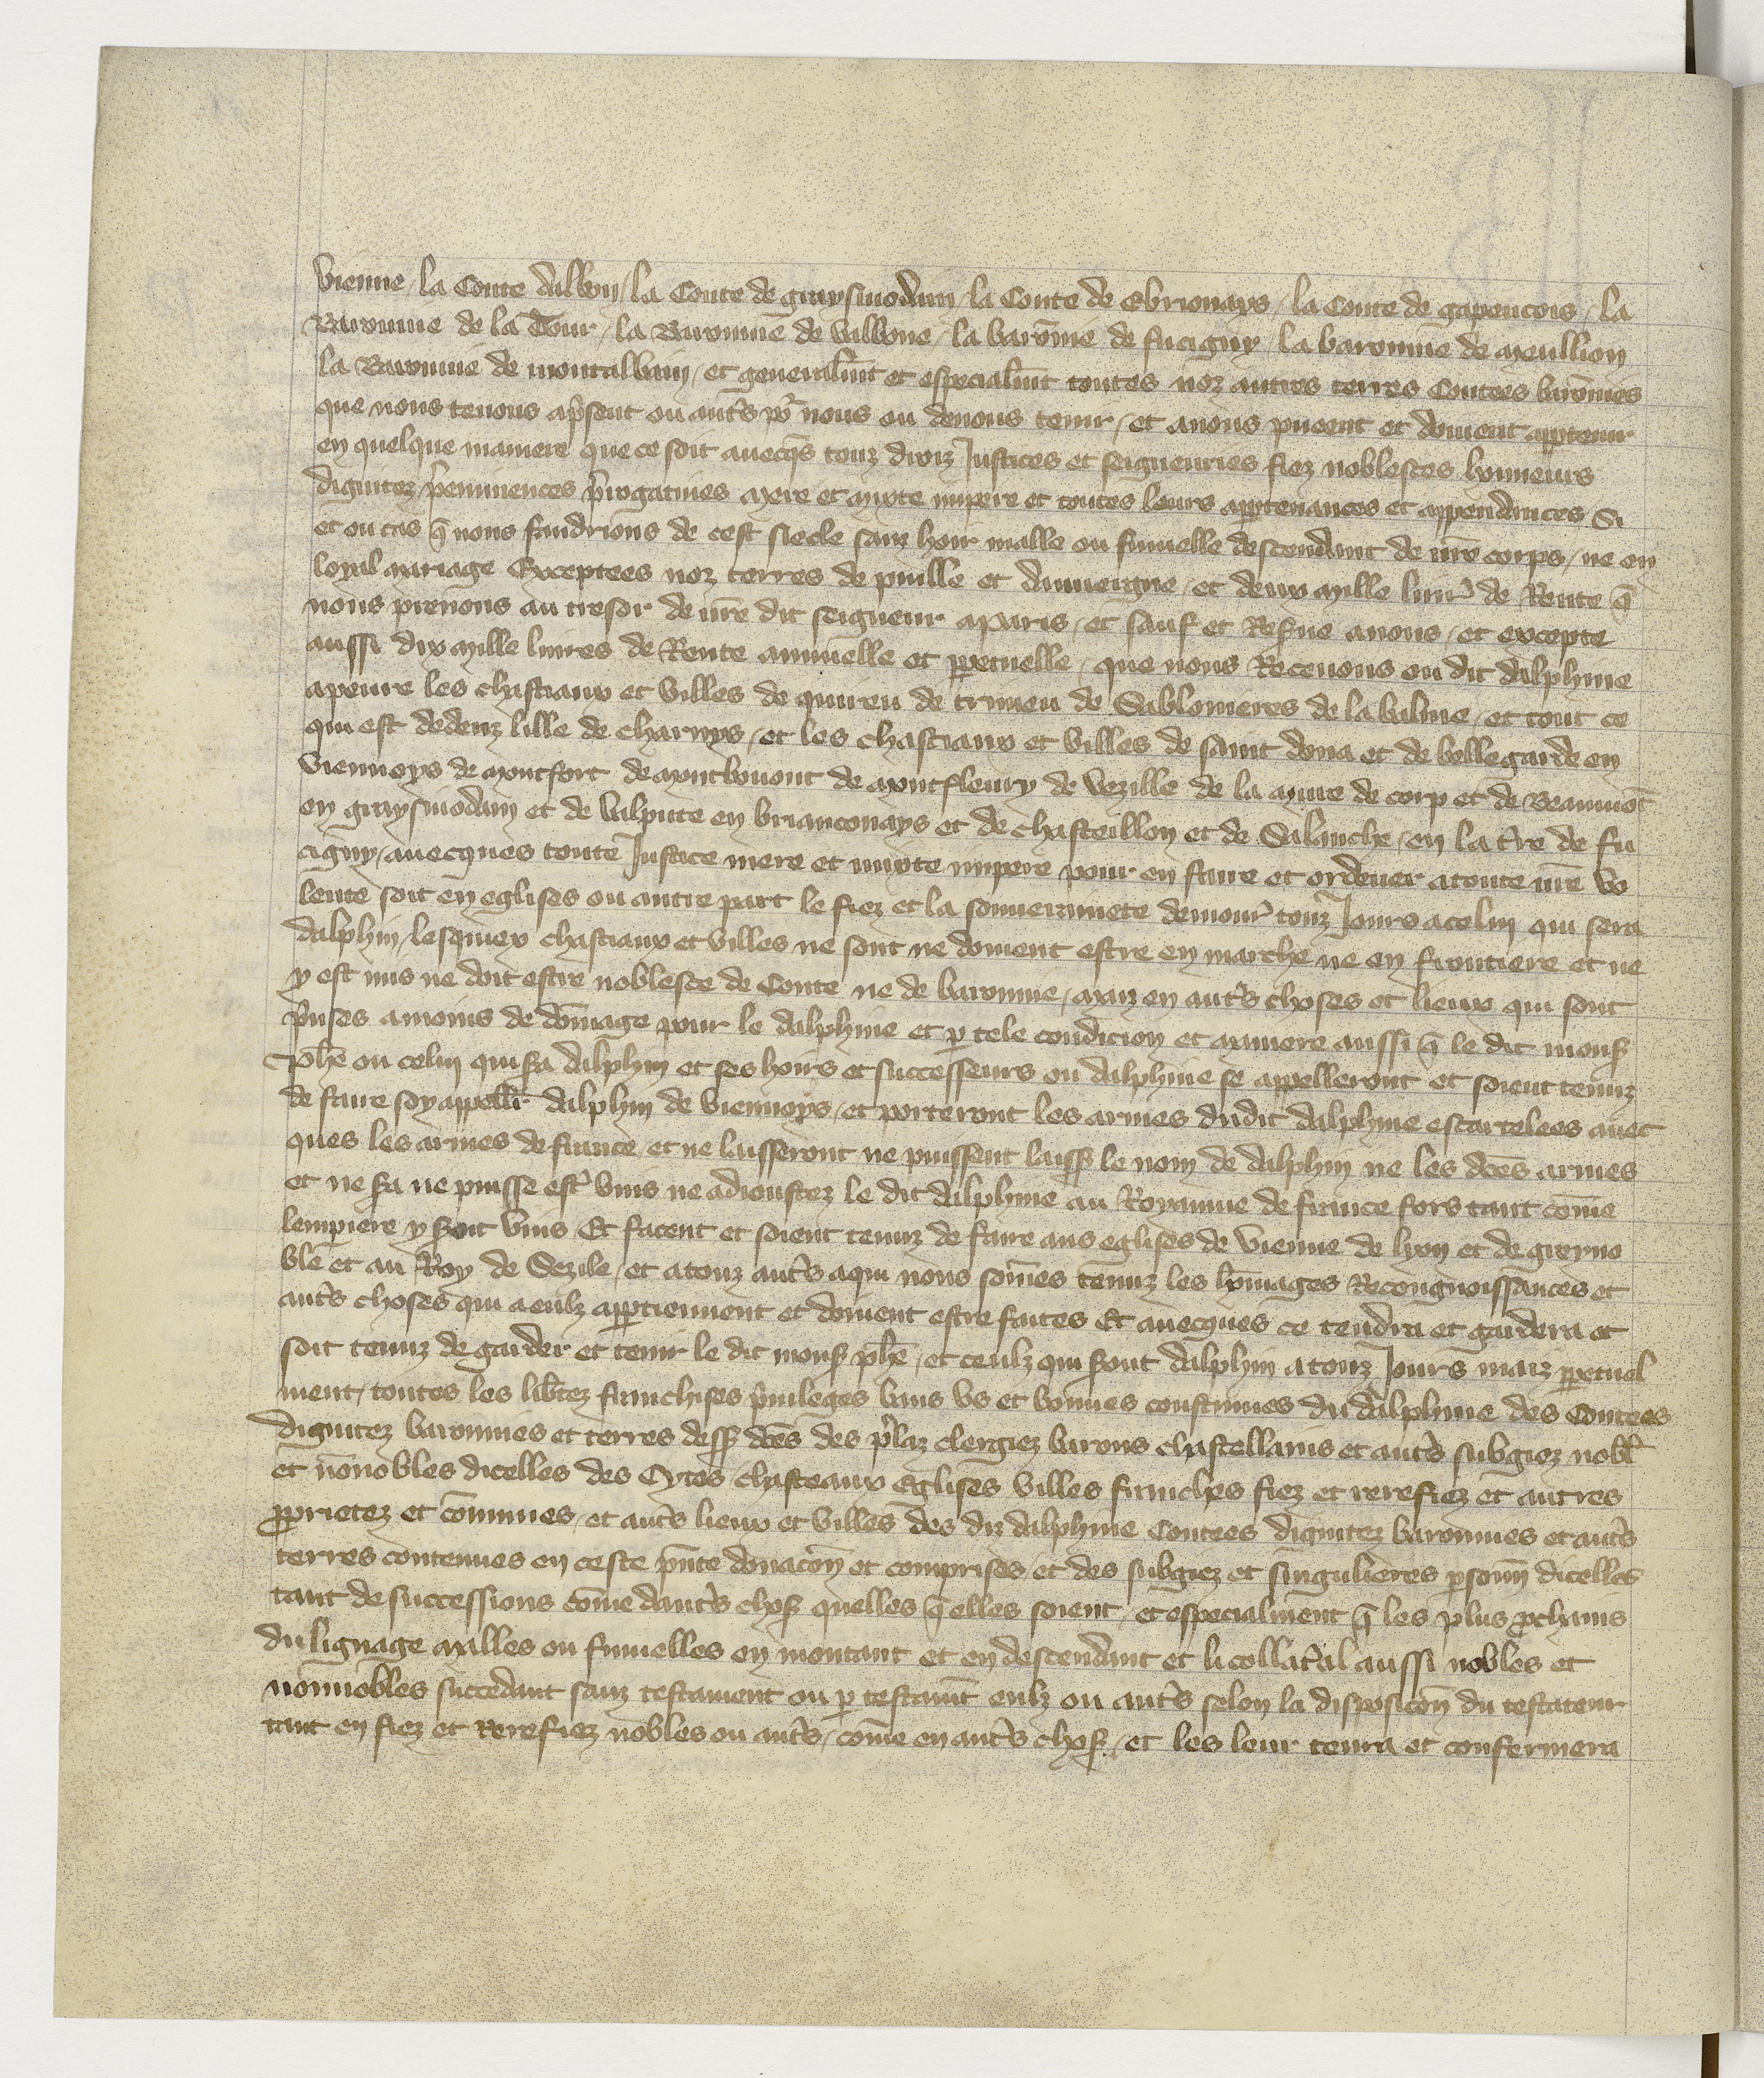 Vienne / la Conte dalbon / la Conte de graysinodain / la Conte de Ebrionays / la Conte de gapencois / la
Baronnie de la Tour / la Baronnie de valbone / la baronie de fucigny / la baronnie de Meullion
la Baronnie de montalbain / et generalmt et especialmt toutes noz autres terres Contees baronies
que nous tenons apsent ou auts por nous ou devons tenir / et a nous pueent et doivent apptenir
en quelque maniere que ce soit avecqs touz droiz Justices et seigneuries fiez noblesces honneurs
dignitez preminences prrogatives Mere et Mixte impere et toutes leurs appartenances et appendances Si
et ou cas q nous faudrions de cest siecle sanz hoir malle ou fumelle descendant de nre corps / ne en
loyal Mariage Exceptees noz terres de puille et dauvergne / et deux Mille livr de Rente q
nous prenons au tresor de nre dit seigneur aparis / et sauf et Reserve anous / et excepte
aussi dix Mille livres de Rente annuelle et perpetuelle / que nous Recevons ou dit dalphine
apenre les chastiaux et villes de quireu de cremieu de Sablonieres de la balme / et tout ce
qui est dedenz lille de charuys / et les chastiaux et villes de saint dona et de bellegarde en
viennoys de Montfort de Montbonont de Montfleury de Vezille de la Mure de corp et de Beaumot
en graysinodain et de valpute en brianconays et de chasteillon et de Salanche / en la tre de fu
cigny / avecques toute Justice mere et mixte impere pour en faire et ordener atoute nre vo
lente soit en eglises ou autre part le fiez et la souverainete demourr touz Jours acelui qui sera
dalphin / lesquiex chastiaux et villes ne sont ne doivent estre en marche ne en frontiere et ne
y est mis ne doit estre noblesce de Conte ne de baronnie / Maiz en auts choses et lieux qui sont
prises amoins de domage pour le dalphine et p tele condicion et Maniere aussi q le dit mons
Phe ou celui qui sa dalphin et ses hoirs et successeurs ou dalphine se appelleront et soient tenuz
de faire soy appeller dalphin de viennoys / et porteront les armes dudit dalphine escartelees avec
ques les armes de france / et ne laisseront ne puissent laiss le nom de dalphin ne les dces armes
et ne sa ne puisse est unis ne adioustez le dit dalphine au Royaume de france fors tant come
lempiere y soit unis / Et facent et soient tenuz de faire aus eglises de vienne de lyon et de greyno
ble et au Roy de Sezile / et atouz auts aqui nous somes tenuz les homages Recongnoissances et
auts choses qui aeulz appartiennent et doivent estre faites Et avecques ce tendra et gardera et
soit tenuz de garder et tenir le dit mons phe / et ceulz qui sont dalphin atouz Jours maiz perpetuel
ment / toutes les libtez franchises privileges bons us et bonnes coustumes du dalphine des Contees
dignitez baronnies et terres dess dces des prlaz clergiez barons chastellains et auts subgiez nobl
et nonobles dicelles des Cytes / chasteaux Eglises villes franches fiez et rerefiez et autres
proprietez et comunes / et auts lieux et villes des diz dalphine Contees dignitez baronnies et auts
terres contenues en ceste pnte donacon et comprises / et des subgiez et singulieres personn dicelles
tant de successions come dauts chos quelles q elles soient / et especialment q les plus prochains
du lignage Malles ou fumelles en montant et en descendant et li collatal aussi nobles et
nonnobles succedant sanz testament ou p testamt eulz ou auts selon la disposicon du testateur
tant en fiez et Rerefiez nobles ou auts / come en auts chos / et les leur tenra et confermera